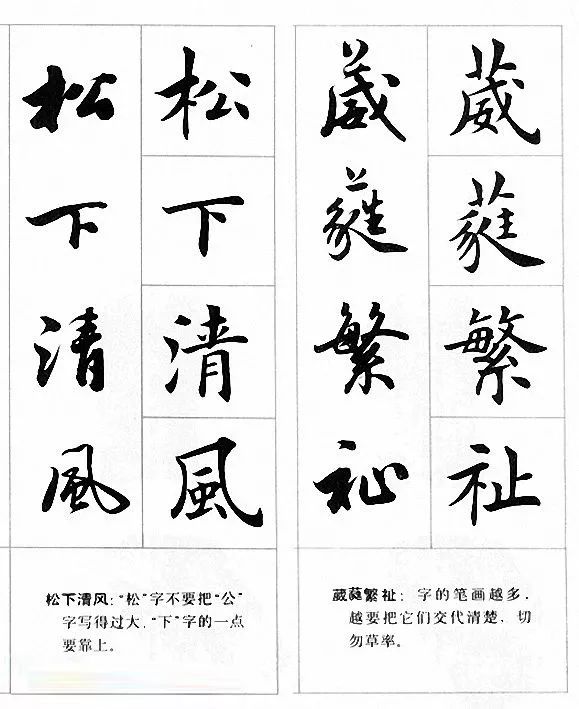 葳蕤繁祉
葳蕤繁祉
葳蕤繁祉：字的笔画越多，
越要把它们交代清楚，切
勿草率。
松下清風
松下清風
松下清风：“松”字不要把“公”
字写得过大，“下”字的一点
要靠上。